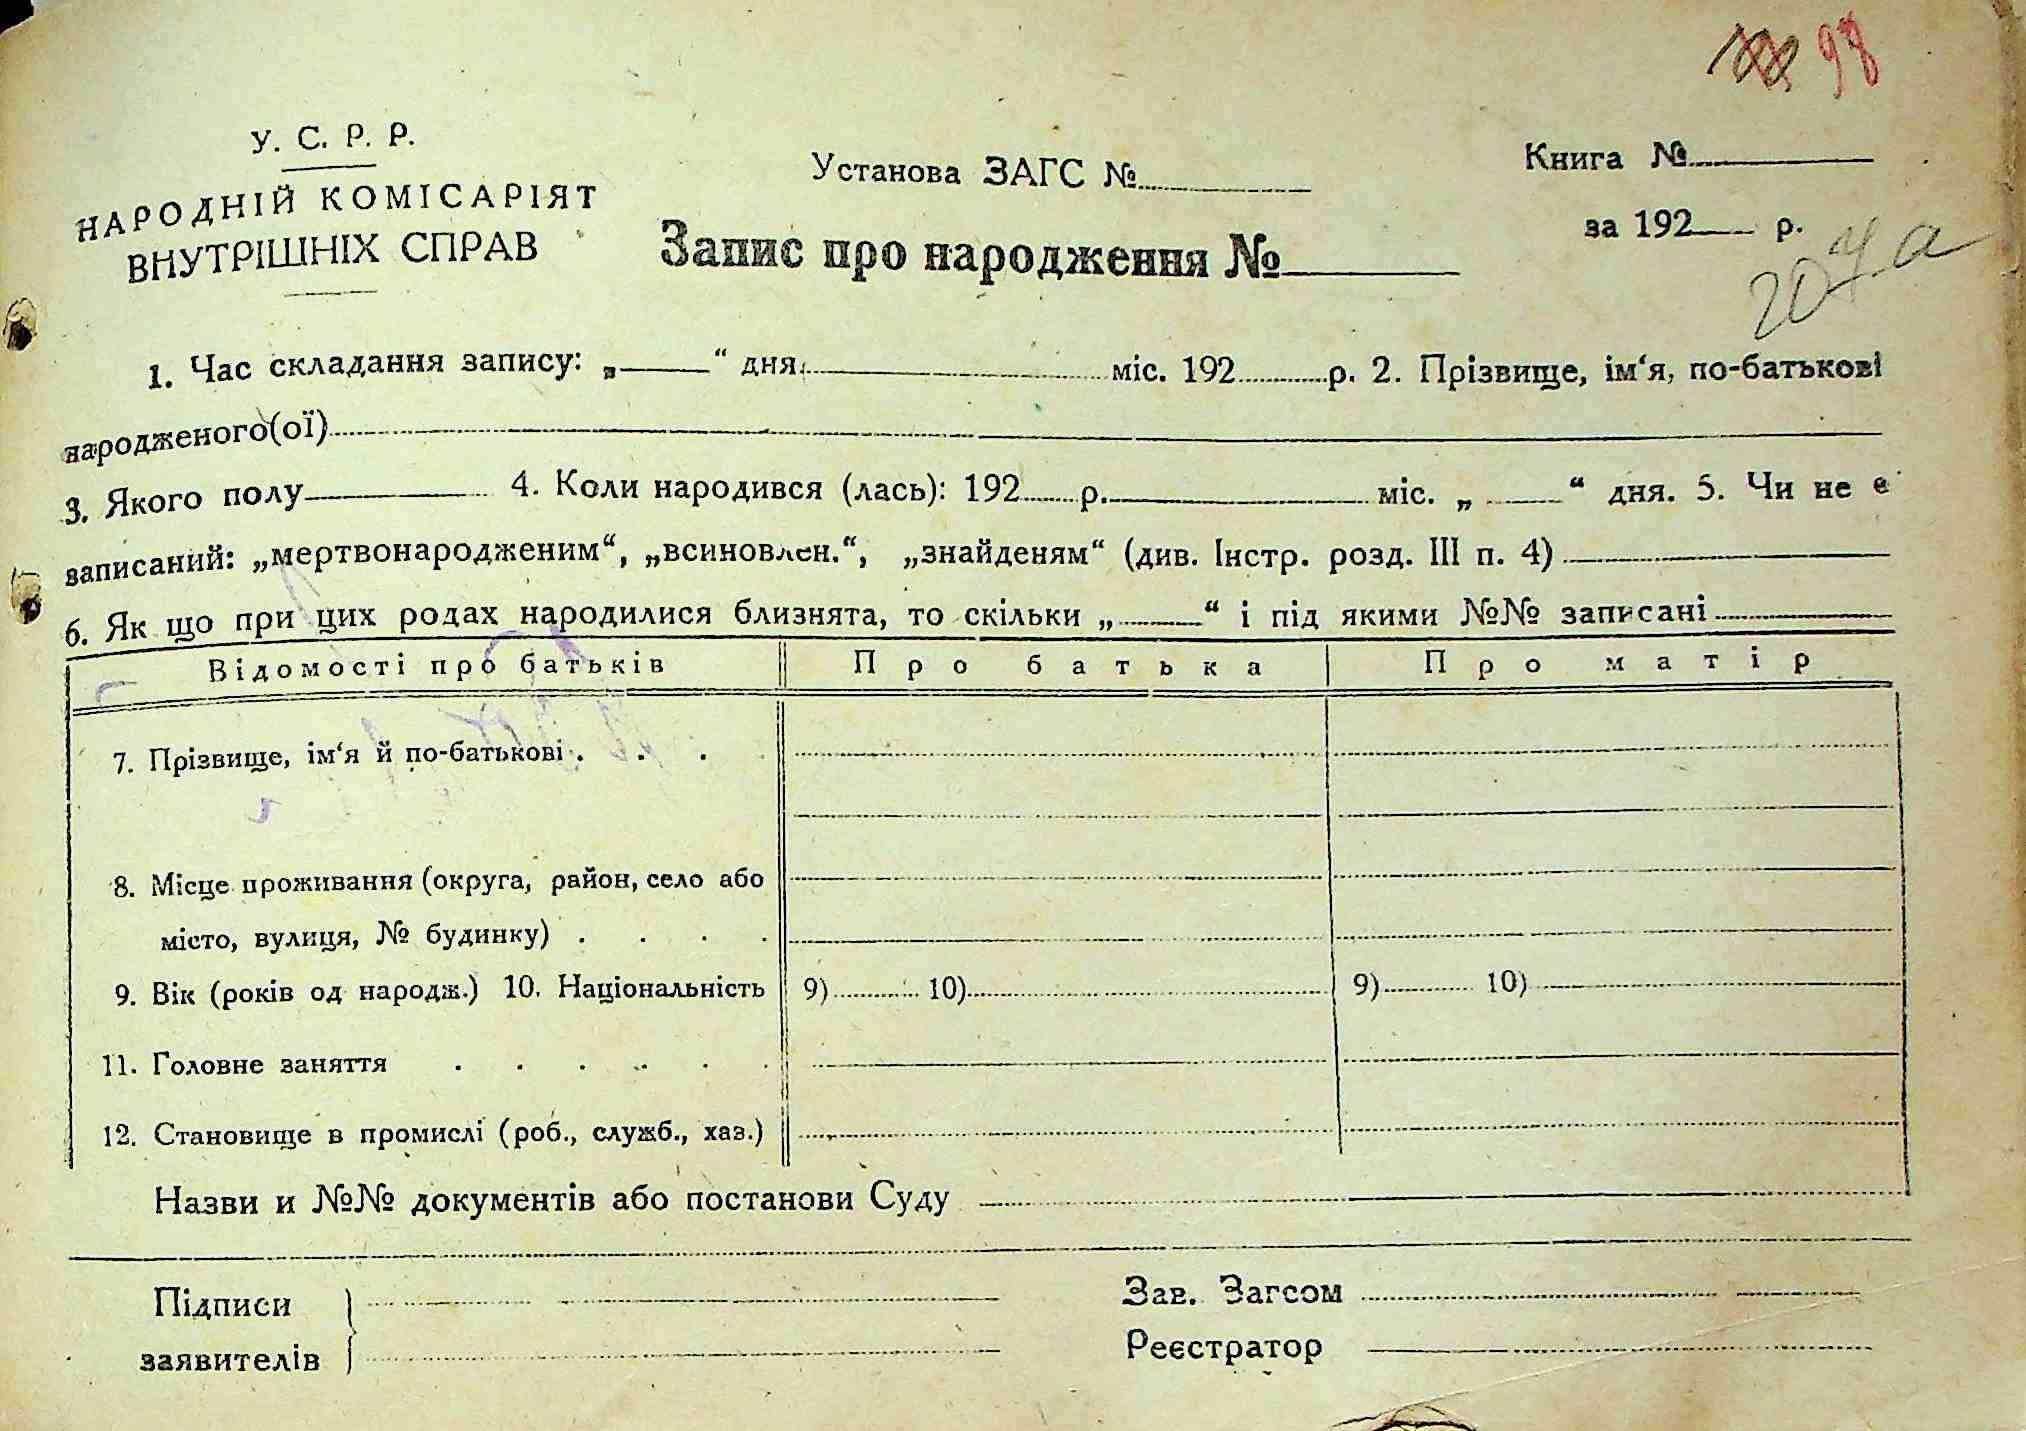 98
У. С. Р. Р.
НАРОДНІЙ КОМІСАРІЯТ
ВНУТРІШНІХ СПРАВ
Установа ЗАГС №
Книга №
за 192 р.
Запис про народження №
1. Час складання запису: „ “ дня міс. 192 р. 2. Прізвище, ім‘я, по-батькові
народженого(ої)
3. Якого полу 4. Коли народився (лась): 192 р. міс. „ “ дня. 5. Чи не є
записаний: „мертвонародженим“, „всиновлен.“, „знайденям“ (див. Інстр. розд. III п. 4)
6. Як що при цих родах народилися близнята, то скільки „ “ і під якими №№ записані
Відомості про батьків Про батька Про матір
7. Прізвище, ім‘я й по-батькові . . .
8. Місце проживання (округа, район, село або
місто, вулиця, № будинку) . . . .
9. Вік (років од народж.) 10. Національність 9) 10) 9) 10)
11. Головне заняття . . . . . .
12. Становище в промислі (роб., служб., хаз.)
Назви и №№ документів або постанови Суду
Підписи
заявителів
Зав. Загсом
Реєстратор